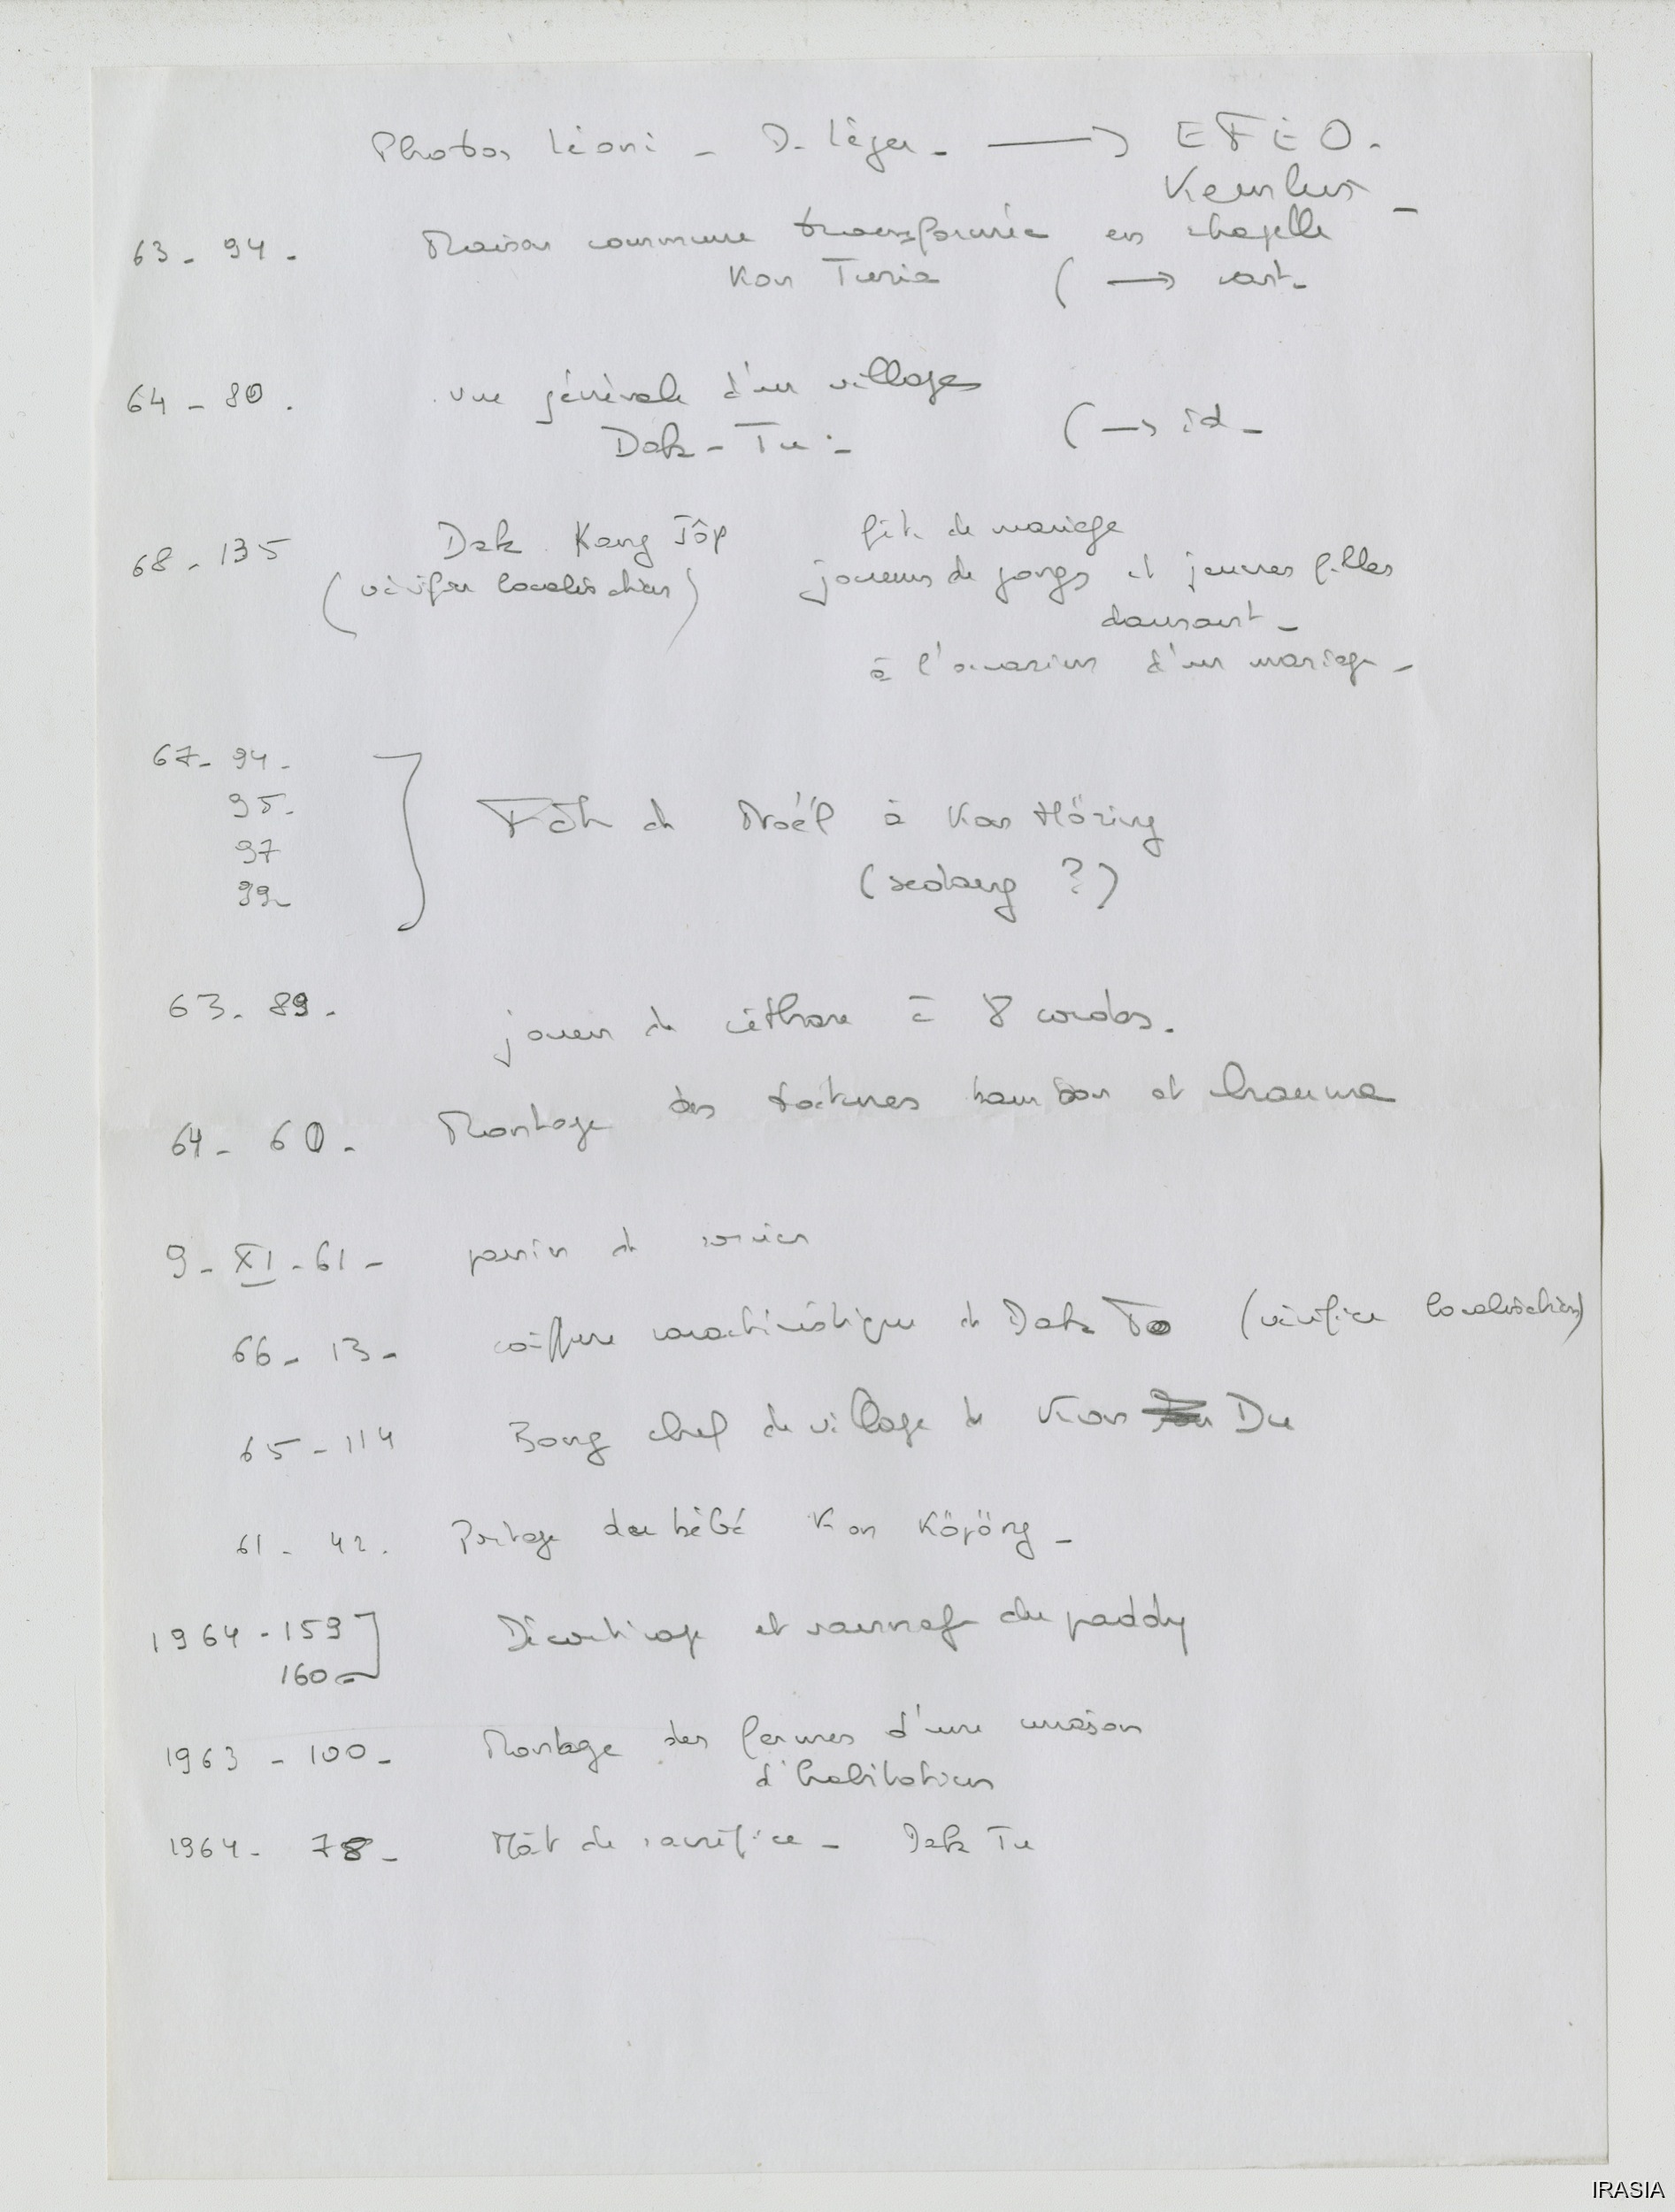 Photos Léoni - D. Léger - → EFEO.
63 - 94 - Maison commune transformée en chapelle
Kon Turia ( →
64 - 80 . vue générale d'un village
Dak - Tu - ( → id -
68 - 135 Dak Kang Jôp fête de mariage
(vérifier localisation) joueurs de gongs et jeunes filles
dansant -
à l'occasion d'un mariage -
67 - 94 -
95 -
97
99 -
Fête de Noël à Kon Höring
(sedang ?)
63 - 89 - joueur de cithare à 8 cordes.
64 - 60 - Montage des toitures bambou et chaume
9 - XI - 61 - de
66 - 13 - coiffure caractéristique de Dak To (vérifier localisation)
65 - 114 Bong chef de village de Kon Du
61 - 42 . Portage du bébé Kon Köjöng -
1964 - 159 Décorticage et vannage du paddy
160 -
1963 - 100 - Montage des fermes d'une maison
d'habitation
1964 - 78 - Mât de sacrifice - Dak Tu
IRASIA